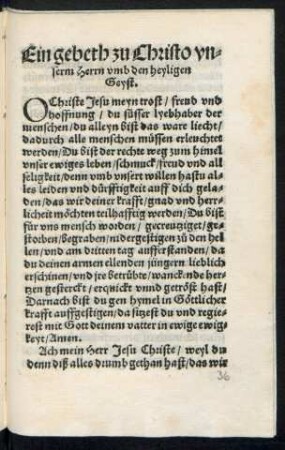 Ein gebeth zu Christo vn-
serm Herrn vmb den heyligen
Gayst.
O Christe Jesu meyn trost / freud vnd
hoffnung / du süsser lyebhaber der
menschen / du alleyn bist das ware liecht /
dadurch alle menschen müssen erleuchtet
werden / Du bist der rechte weg zum himel
vnser ewiges leben / schmuck / freud vnd all
seligkeit / denn vmb vnsert willen hastu al-
les leiden vnd dürfftigkeit auff dich gela-
den / das wir deiner krafft / gnad vnd herr-
licheit möchten teilhafftig werden / Du bist
für vns mensch worden / gecreutziget / ge-
storben / begraben / nidergestigen zů den hel-
len / vnd am dritten tag aufferstanden / da
du deinen armen ellenden jüngern lieblich
erschinen / vnd jre betrübte / wanckende her-
tzen gesterckt / erquickt vnnd getröst hast /
Darnach bist du gen hymel in Göttlicher
krafft auffgestigen / da sitzest du vnd regie-
rest mit Gott deinem vatter in ewige ewig-
keyt / Amen.
Ach mein Herr Jesu Christe / weyl du
denn diß alles drumb gethan hast / das wir
36